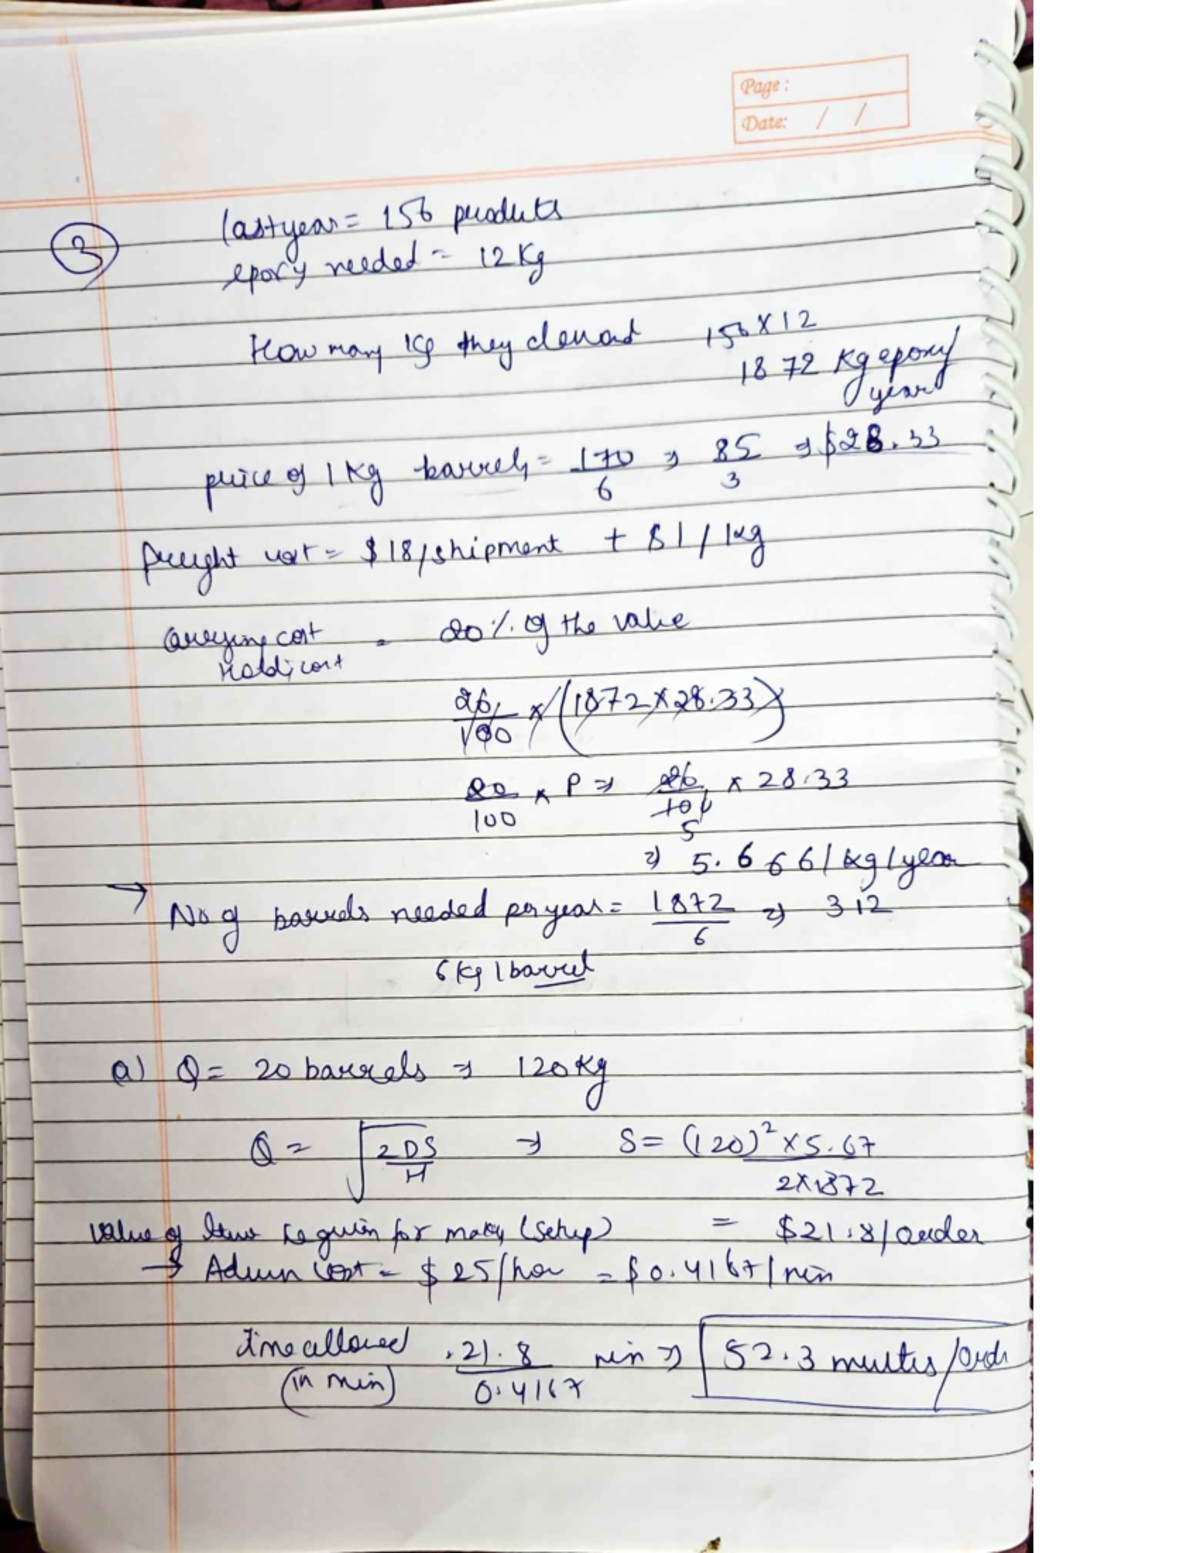 Page:
Date: / /
3
last year = 156 products
epoxy needed = 12 Kg
How many Kg they demand 156 X 12
1872 Kg epoxy/
year
price of 1 Kg barrels = 170/6 ⇒ 85/3 ⇒ $28.33
freight cost = $18/shipment + $1/1kg
Carrying cost = 20% of the value
Holdi cost
20/100 x (1872 x 28.33)
20/100 x P ⇒ 20/100 x 28.33
5
⇒ 5.666/kg/year
→ No of barrels needed per year = 1872/6 ⇒ 312
6 kg/barrel
a) Q = 20 barrels ⇒ 120 Kg
Q = √2DS/H ⇒ S = (120)² x 5.67 / 2x1872
Value of time require for making (Setup) = $21.8/order
→ Admin Cost = $25/hour = $0.4167/min
Time allowed 21.8/0.4167 min ⇒ 52.3 minutes/Orde
(in min)